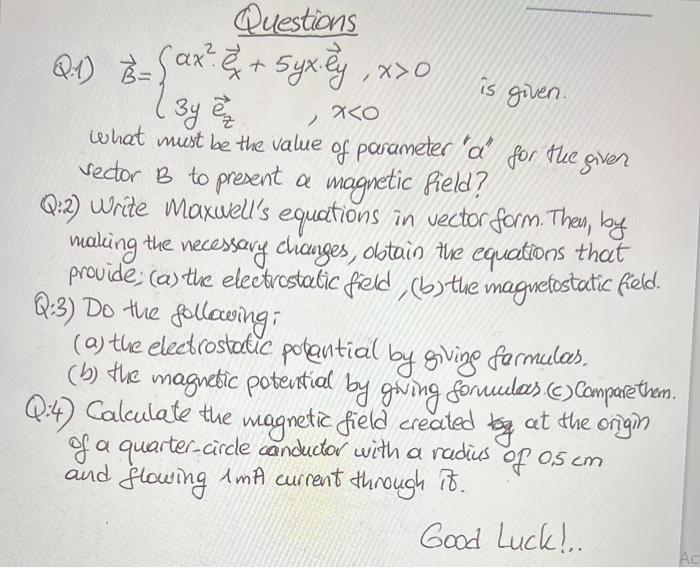 Questions
Q:1) B⃗= { ax². e⃗x + 5yx.e⃗y , x>0
3y e⃗z , x<0
is given.
what must be the value of parameter "a" for the given
vector B to present a magnetic field?
Q:2) Write Maxwell's equations in vector form. Then, by
making the necessary changes, obtain the equations that
provide; (a) the electrostatic field, (b) the magnetostatic field.
Q:3) Do the following;
(a) the electrostatic potential by giving formulas.
(b) the magnetic potential by giving formulas. (c) Compare them.
Q:4) Calculate the magnetic field created at the origin
of a quarter-circle conductor with a radius of 0,5 cm
and flowing 1mA current through it.
Good Luck!..
Ac